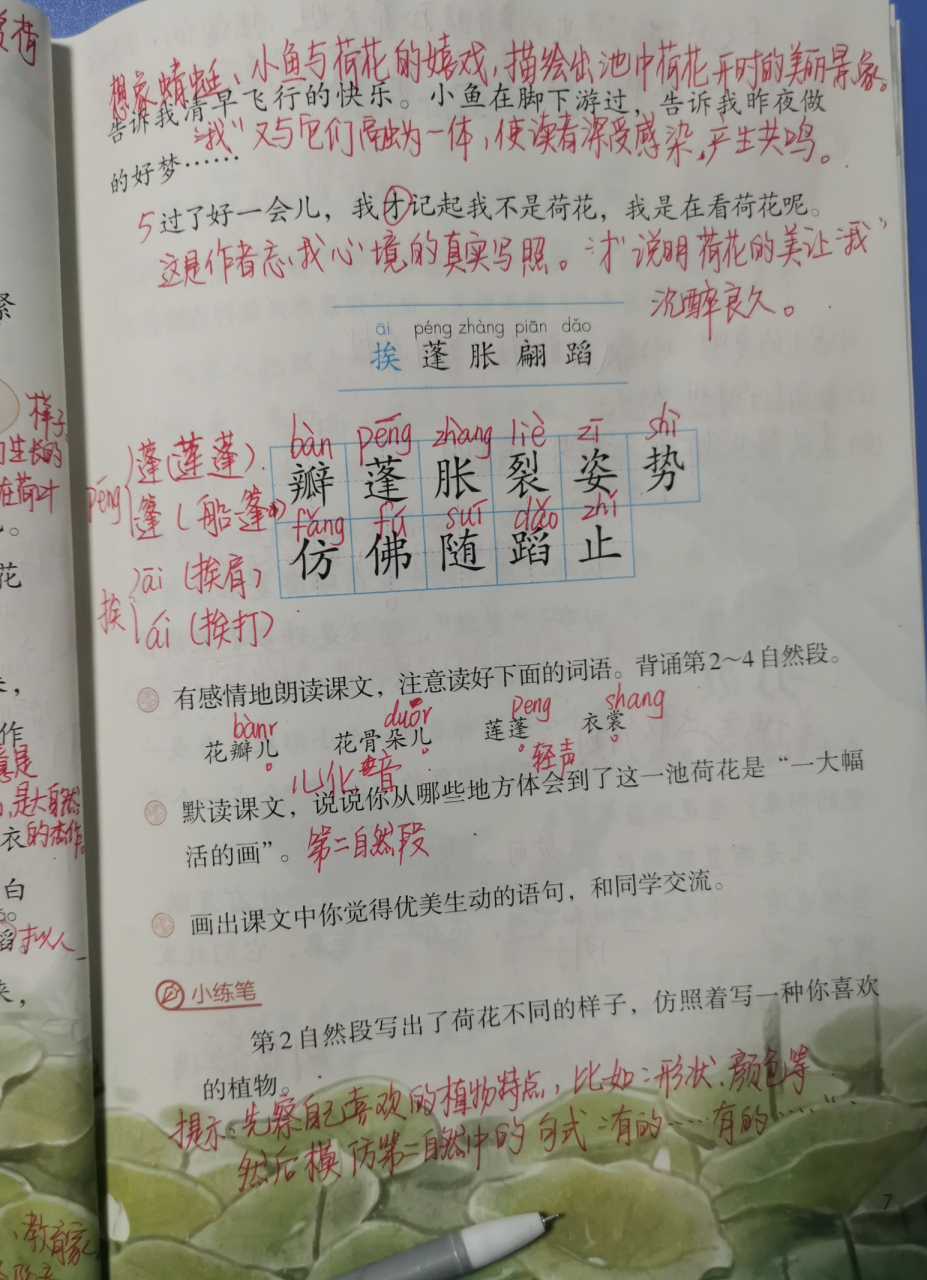 想象蜻蜓、小鱼与荷花的嬉戏，描绘出池中荷花开时的美丽景象。
告诉我清早飞行的快乐。小鱼在脚下游过，告诉我昨夜做
“我”又与它们融为一体，使读者深受感染，产生共鸣。
的好梦……
5 过了好一会儿，我才记起我不是荷花，我是在看荷花呢。
这是作者忘我心境的真实写照。“才”说明荷花的美让“我”
沉醉良久。
āi péng zhàng piān dǎo
挨 蓬 胀 翩 蹈
bàn péng zhàng liè zī shì
瓣 蓬 胀 裂 姿 势
fǎng fú suí dǎo zhǐ
仿 佛 随 蹈 止
péng 蓬（莲蓬）
篷（船篷）
挨 āi（挨肩）
ái（挨打）
有感情地朗读课文，注意读好下面的词语。背诵第2～4自然段。
bànr duǒr peng shang
花瓣儿 花骨朵儿 莲蓬 衣裳
儿化音 轻声
默读课文，说说你从哪些地方体会到了这一池荷花是“一大幅
活的画”。第二自然段
画出课文中你觉得优美生动的语句，和同学交流。
小练笔
第2自然段写出了荷花不同的样子，仿照着写一种你喜欢
的植物。
提示：先察自己喜欢的植物特点，比如：形状、颜色等
然后模仿第二自然中的句式“有的……有的……”
7
样子
生长的
在荷叶
花
作
意是
是大自然
衣的杰作。
白
蹈 拟人
来，
、教育家